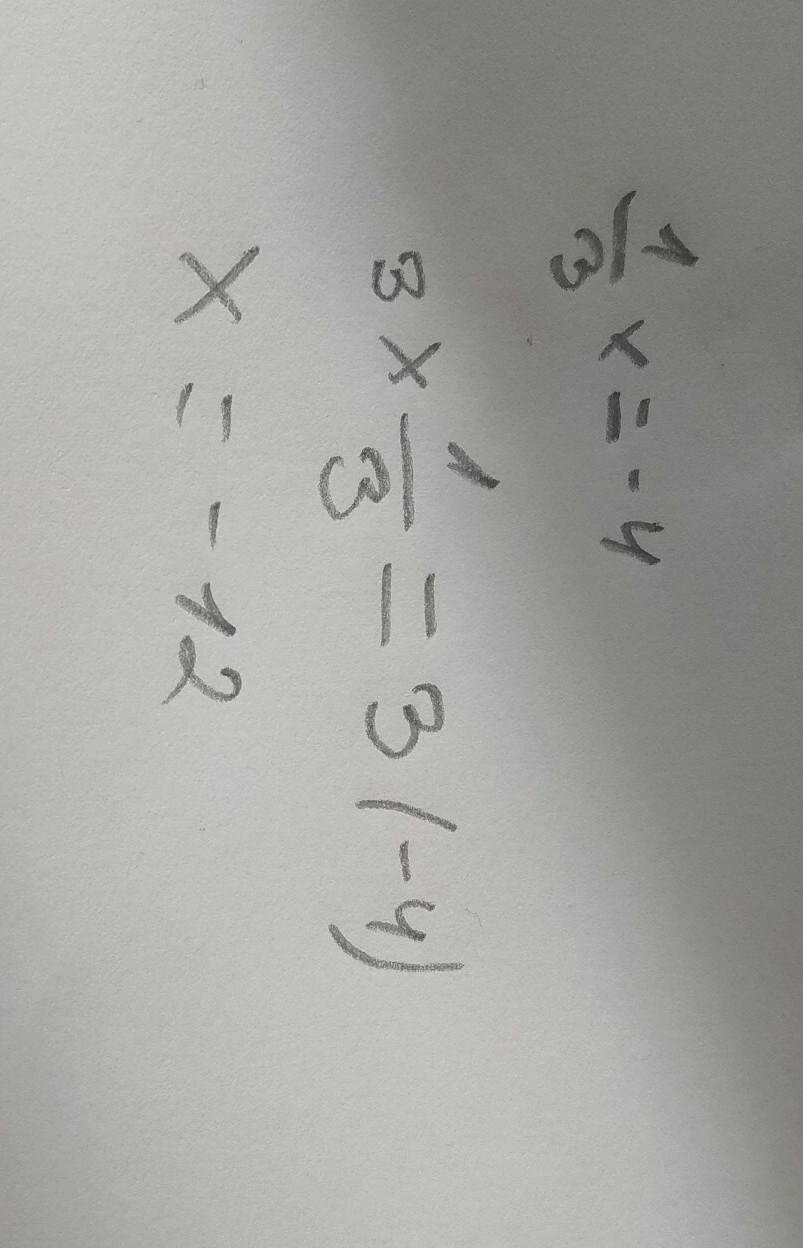 1/3 x = -4
3 x 1/3 = 3 (-4)
x = -12